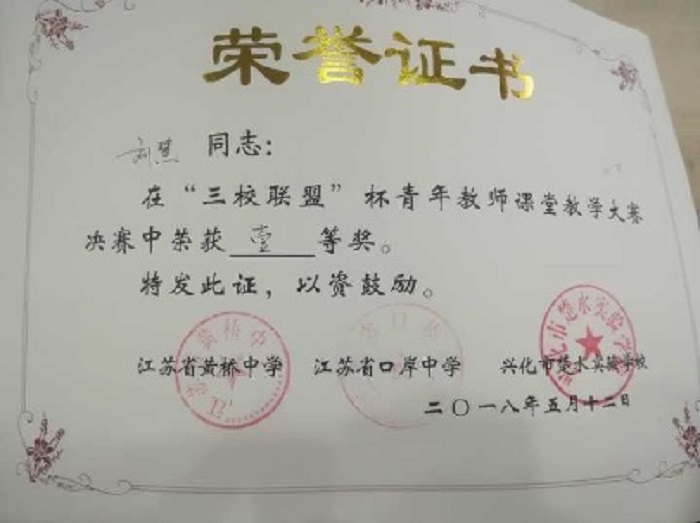 荣誉证书
刘慧 同志：
在“三校联盟”杯青年教师课堂教学大赛
决赛中荣获 壹 等奖。
特发此证，以资鼓励。
江苏省黄桥中学 江苏省口岸中学 兴化市楚水实验学校
二〇一八年五月十二日